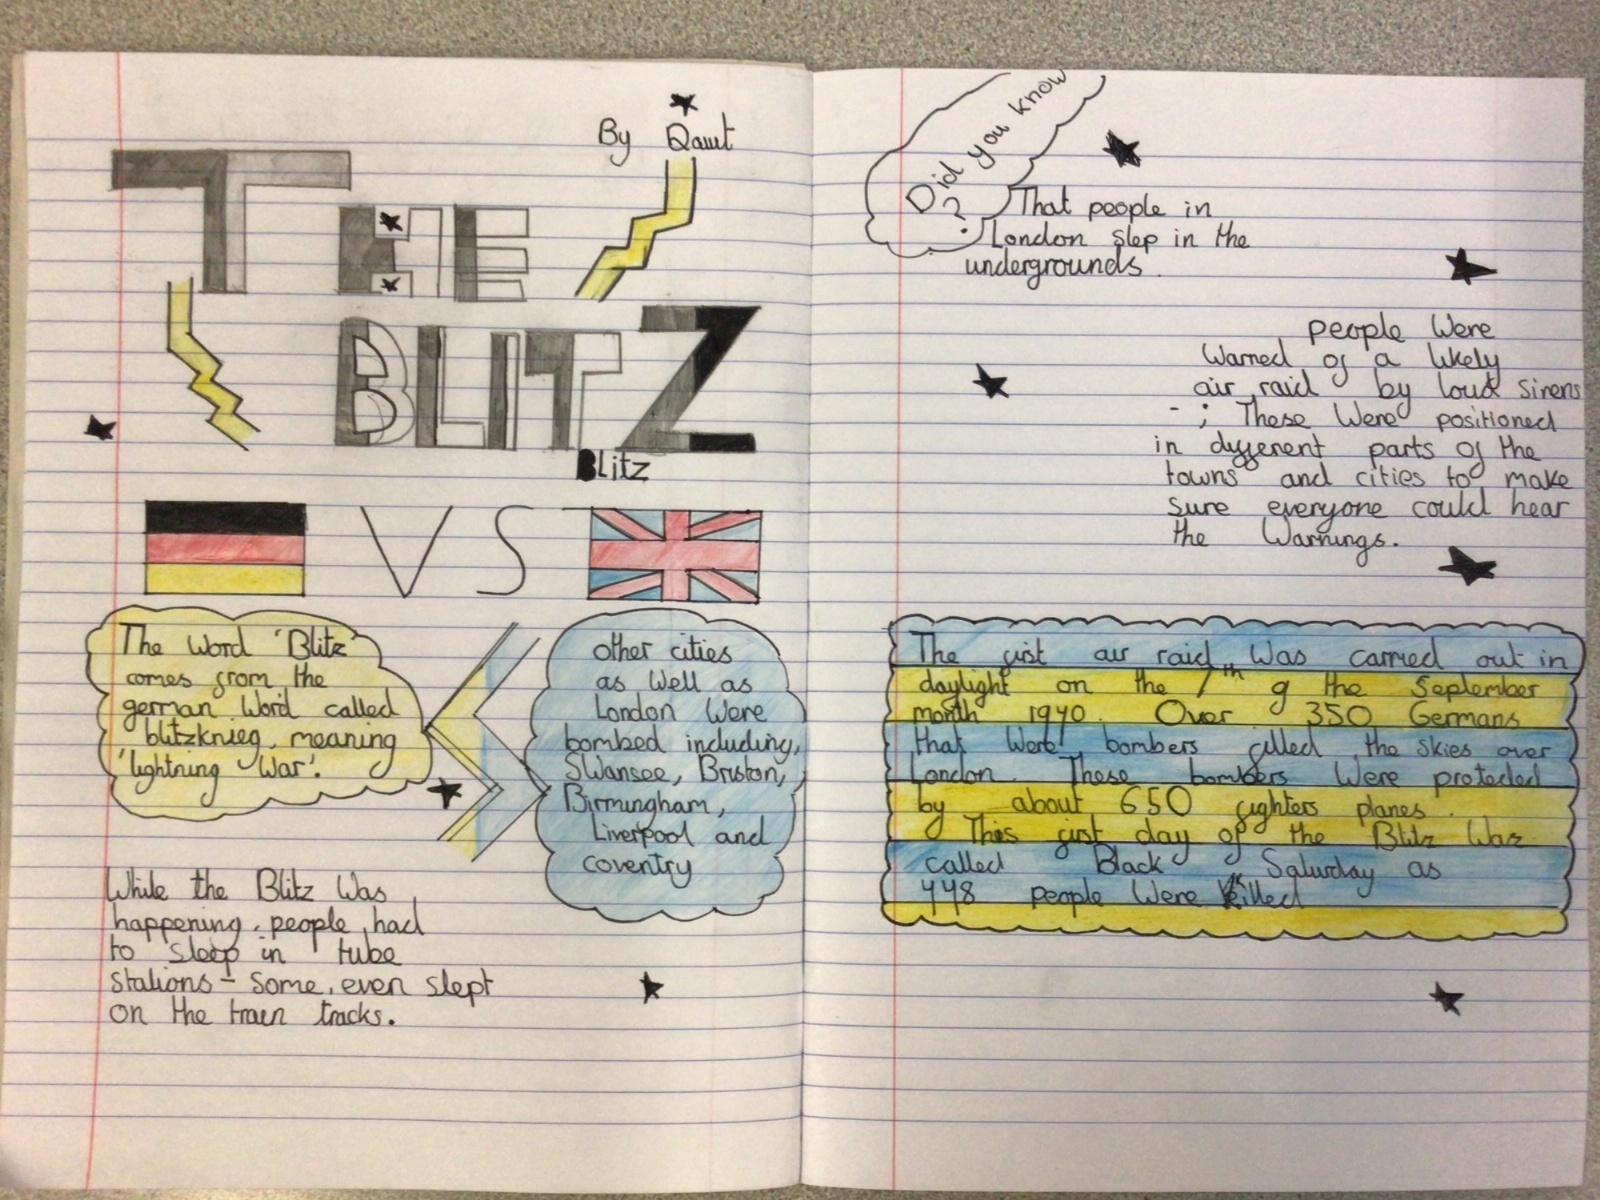 By Qawt
THE
BLITZ
Blitz
VS
The Word 'Blitz'
comes from the
german Word called
blitzknieg, meaning
'lightning War'.
other cities
as Well as
London Were
bombed including,
Swansee, Briston,
Birmingham,
Liverpool and
coventry
While the Blitz Was
happening, people had
to sleep in tube
Stations - Some, even slept
on the train tracks.
Did you know
?
That people in
London slep in the
undergrounds.
people Were
Warned of a likely
air raid by loud Sirens
- ; These Were positioned
in different parts of the
towns and cities to make
Sure everyone could hear
the Warnings.
The first air raid Was carried out in
daylight on the 7th of the September
month 1940. Over 350 Germans
that Were bombers filled the skies over
London. These bombers Were protected
by about 650 fighters planes.
This first day of the Blitz Was
called Black Saturday as
448 people Were killed